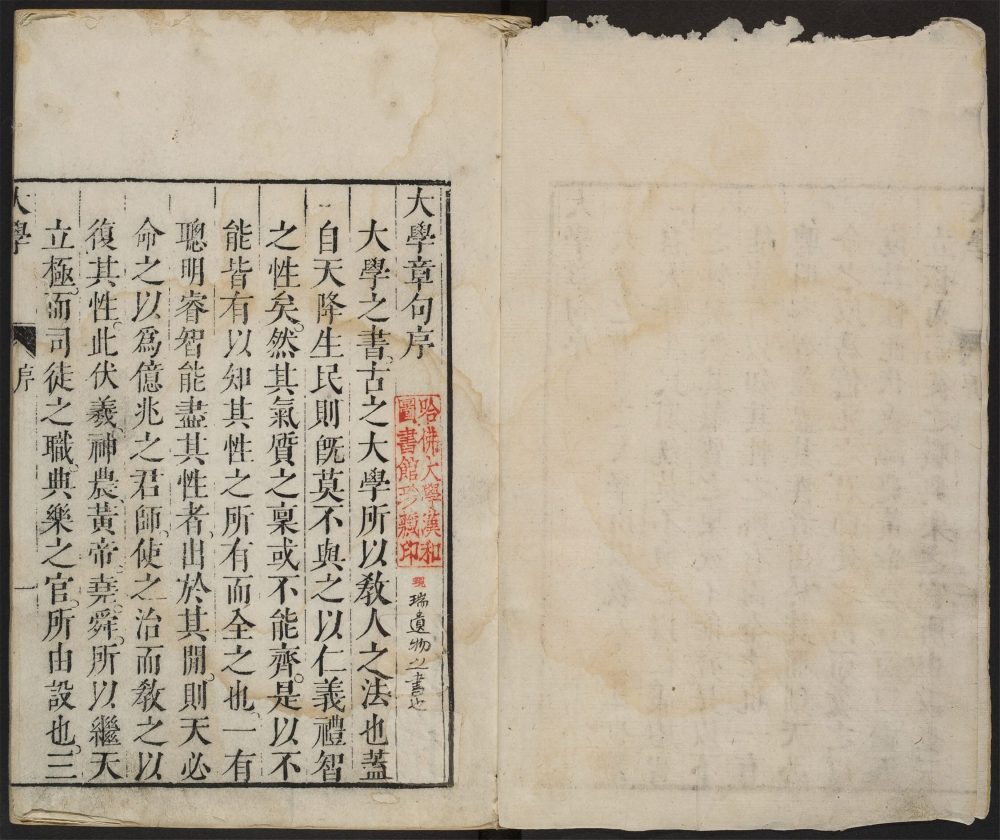 大學章句序
哈佛大學漢和
圖書館珍藏印
瑞遺物之書也
大學之書。古之大學所以敎人之法也蓋
自天降生民則旣莫不與之以仁義禮智
之性矣。然其氣質之稟或不能齊。是以不
能皆有以知其性之所有而全之也。一有
聰明睿智能盡其性者。出於其閒。則天必
命之以爲億兆之君師。使之治而敎之以
復其性。此伏羲。神農。黃帝。堯。舜。所以繼天
立極。而司徒之職。典樂之官。所由設也。三
大學
序
一